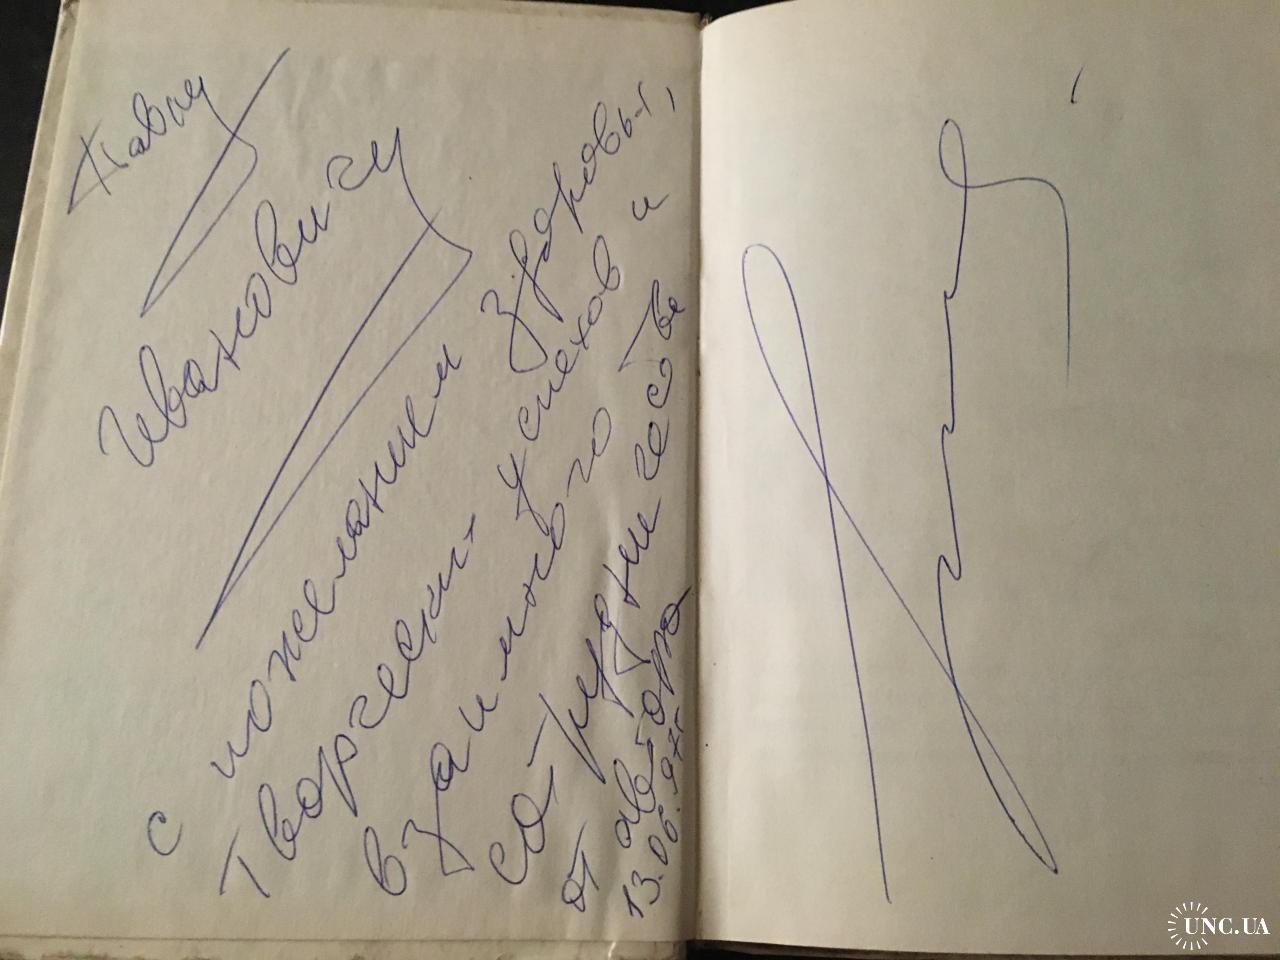 Павлу
Ивановичу
с пожеланием здоровья,
творческих успехов и
взаимного
сотрудничества
от автора
13.06.97г
UNC.UA